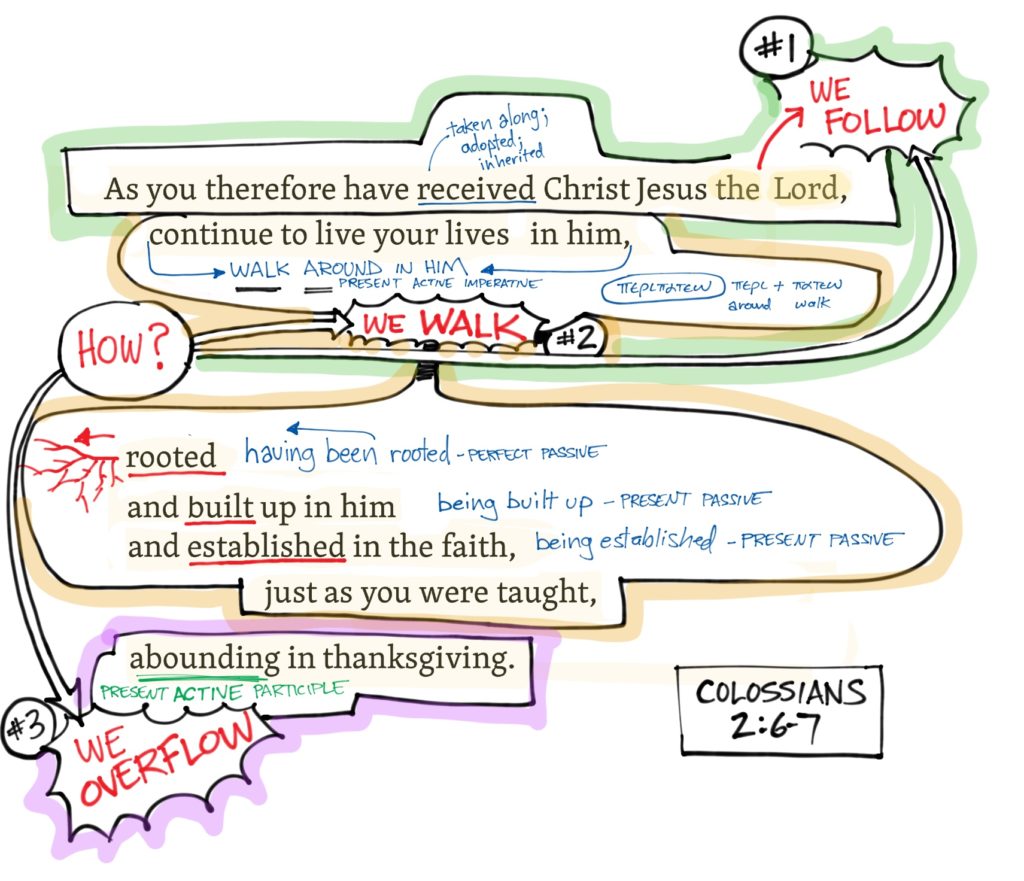 #1
WE
FOLLOW
taken along;
adopted;
inherited
As you therefore have received Christ Jesus the Lord,
continue to live your lives in him,
WALK AROUND IN HIM
PRESENT ACTIVE IMPERATIVE
περιπατεω περι + πατεω
around walk
HOW?
WE WALK
#2
rooted having been rooted - PERFECT PASSIVE
and built up in him being built up - PRESENT PASSIVE
and established in the faith, being established - PRESENT PASSIVE
just as you were taught,
abounding in thanksgiving.
PRESENT ACTIVE PARTICIPLE
#3
WE
OVERFLOW
COLOSSIANS
2:6-7